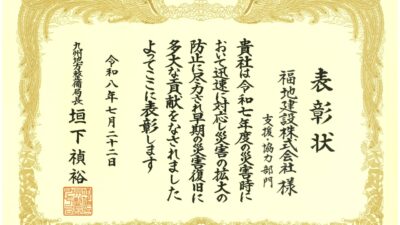 表彰状
支援・協力部門
福地建設株式会社 様
貴社は令和七年度の災害時に
おいて迅速に対応し災害の拡大の
防止に尽力され早期の災害復旧に
多大な貢献をなされました
よってここに表彰します
令和八年七月二十二日
九州地方整備局長
垣下禎裕